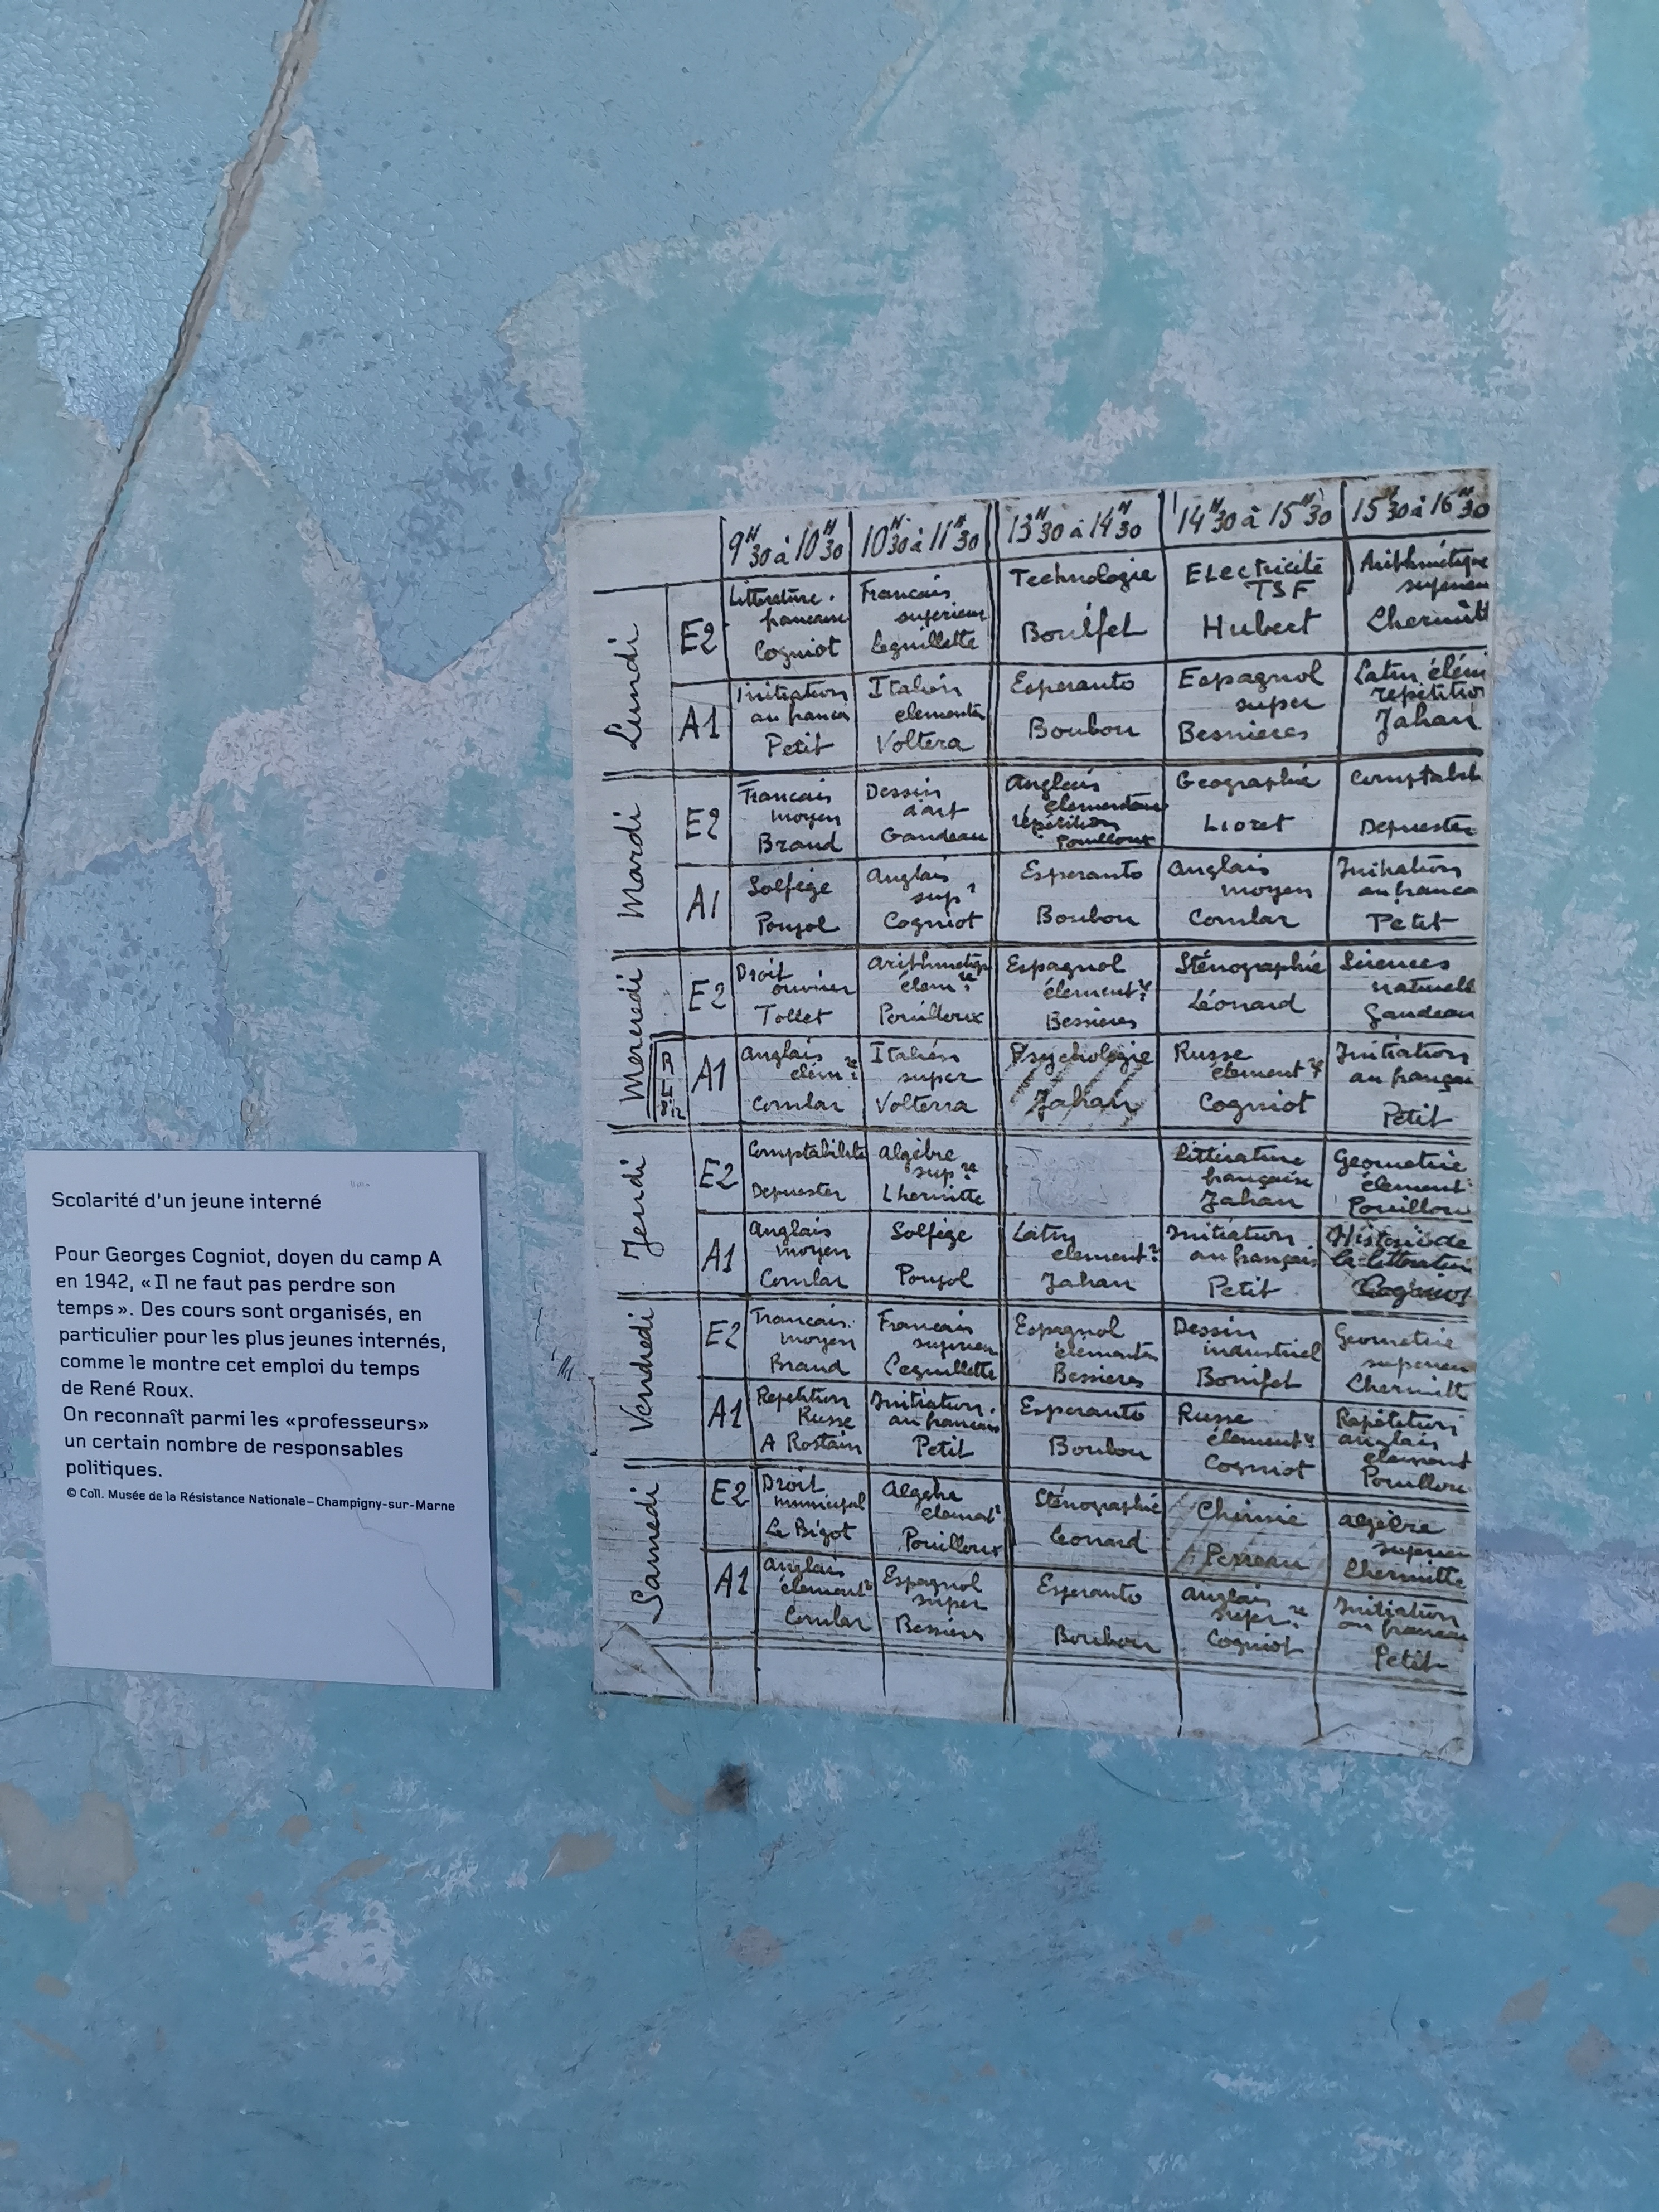 Scolarité d'un jeune interné
Pour Georges Cogniot, doyen du camp A
en 1942, « Il ne faut pas perdre son
temps ». Des cours sont organisés, en
particulier pour les plus jeunes internés,
comme le montre cet emploi du temps
de René Roux.
On reconnaît parmi les «professeurs»
un certain nombre de responsables
politiques.
© Coll. Musée de la Résistance Nationale–Champigny-sur-Marne
9H30 à 10H30 10H30 à 11H30 13H30 à 14H30 14H30 à 15H30 15H30 à 16H30
Lundi
E2
Litterature
francaise
Cogniot
Francais
superieur
Leguillette
Technologie
Electricité
TSF
Hubert
Arithmétique
superieur
A1
Initiation
au francai
Petit
Italien
elementa
Voltera
Esperanto
Boubou
Espagnol
super
Besnieres
Latin élém
répétition
Jahan
Mardi
E2
Francais
moyen
Braud
Dessin
d'art
Gaudeau
Anglais
elementaire
répétition
Pouilloux
Geographie
Lioret
Comptabili
Depuester
A1
Solfège
Poujol
Anglais
supr
Cogniot
Esperanto
Boubou
Anglais
moyen
Cornlar
Initiation
au franca
Petit
Mercredi
E2
Droit
ouvrier
Tollet
Arithmetiq
élemre
Pouilloux
Espagnol
élementre
Bessieres
Sténographie
Léonard
Sciences
naturell
Gaudeau
A1
Anglais
élemre
Cornlar
Italien
super
Volterra
Psychologie
Jahan
Russe
élementre
Cogniot
Initiation
au françai
Petit
Jeudi
E2
Comptabilité
Depuester
Algèbre
supre
Lhermitte
Littérature
française
Jahan
Geometrie
élement
Pouillou
A1
Anglais
moyen
Cornlar
Solfège
Poujol
Latin
elementre
Jahan
Initiation
au français
Petit
Histoire de
la litteratur
Cogniot
Vendredi
E2
Francais
moyen
Braud
Francais
superieu
Leguillette
Espagnol
élementa
Bessieres
Dessin
industriel
Bonifet
Geometrie
superieu
A1
Repetition
Russe
A Rostain
Initiation
au francais
Petit
Esperanto
Boubou
Russe
élementre
Cogniot
Répétition
anglais
élement
Pouillou
Samedi
E2
Droit
municipal
Le Bigot
Algebre
Pouilloux
Sténographie
Leonard
Chimie
Perreau
Algèbre
superieu
Lhermitte
A1
Anglais
élementre
Cornlar
Espagnol
super
Bessieres
Esperanto
Boubou
Anglais
superre
Cogniot
Initiation
au francai
Petit